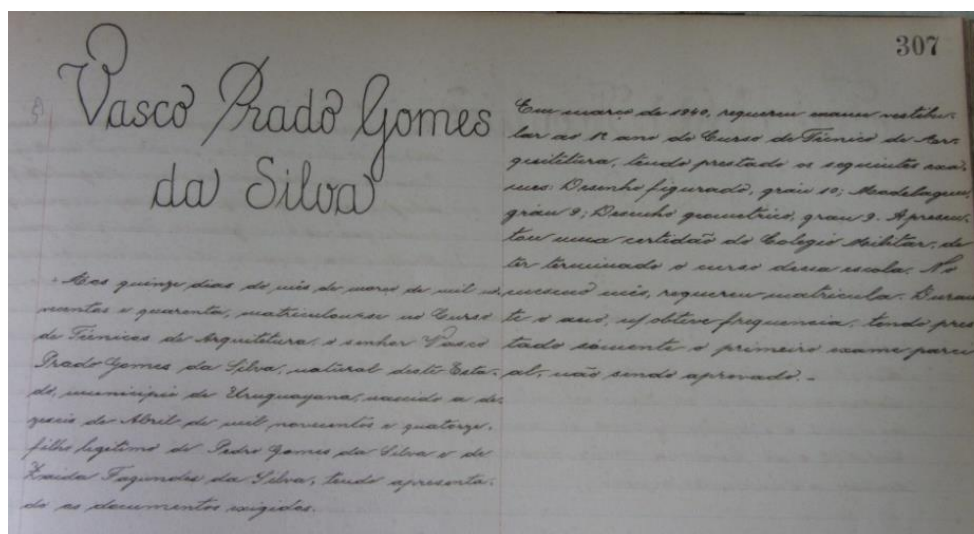 307
Vasco Prado Gomes
da Silva
Aos quinze dias do mês de março de mil no-
vecentos e quarenta, matriculou-se no Curso
de Técnicos de Arquitetura, o senhor Vasco
Prado Gomes da Silva, natural deste Esta-
do, municipio de Uruguayana, nascido a de-
zeseis de Abril de mil novecentos e quatorze,
filho legitimo de Pedro Gomes da Silva e de
Zaida Fagundes da Silva, tendo apresenta-
do os documentos exigidos.
Em março de 1940, requereu exame vestibu-
lar ao 1º ano do Curso de Técnico de Ar-
quitetura, tendo prestado os seguintes exa-
mes: Desenho figurado, gráu 10; Modelagem,
gráu 9; Desenho geometrico, grau 9. Apresen-
tou uma certidão do Colegio Militar, de
ter terminado o curso dessa escola. No
mesmo mês, requereu matricula. Duran-
te o ano, obteve frequencia, tendo pres-
tado sómente o primeiro exame parci-
al, não sendo aprovado. -